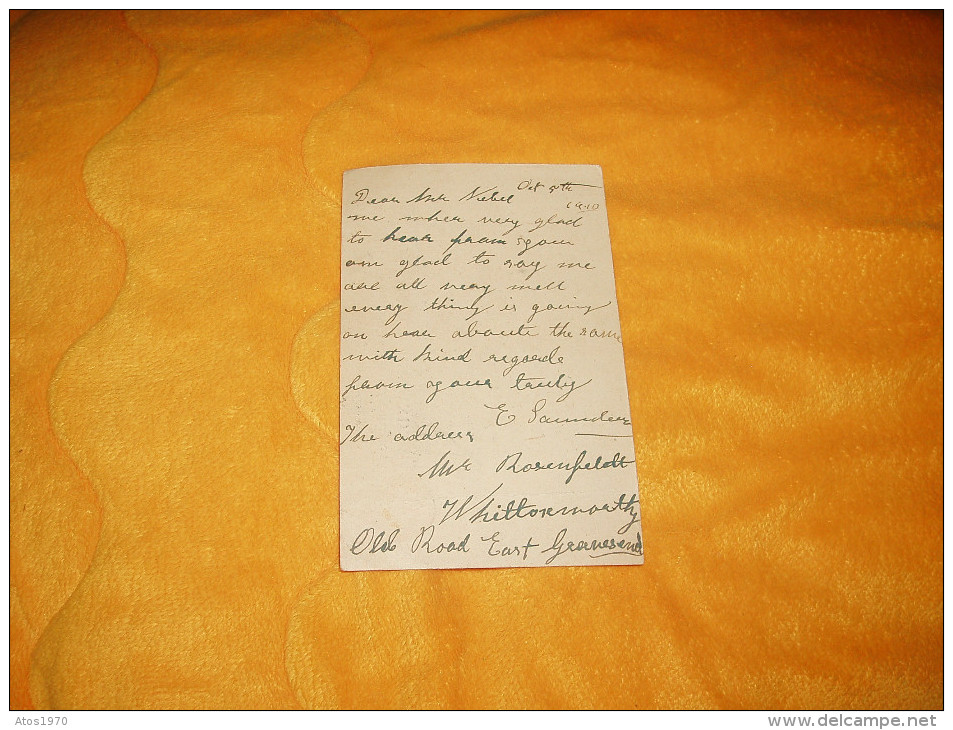 Oct 5th
1910
Dear Mr Niebel
me wher very glad
to hear from your
am glad to say me
are all very well
every thing is going
on hear aboute the same
with kind regards
from yours truly
E Saunders
The address
Mr Rosenfeldt
Whittonsworthy
Old Road East Gravesend
Atos1970
www.delcampe.net